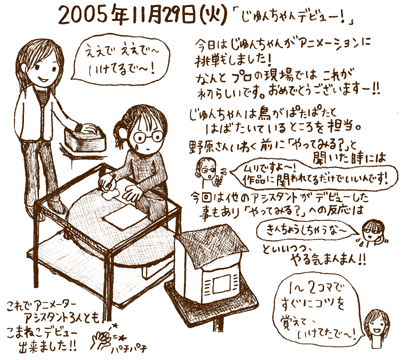 2005年11月29日(火)「じゅんちゃんデビュー!」
ええで ええで〜
いけてるで〜!
今日はじゅんちゃんがアニメーションに
挑戦しました!
なんと プロの現場では これが
初らしいです。おめでとうございますー!!
じゅんちゃんは鳥がぱたぱたと
はばたいているところを担当。
野原さんいわく前に「やってみる?」と
聞いた時には
ムリですよ〜!
作品に関われてるだけでいいんです!
今回は他のアシスタントがデビューした
事もあり「やってみる?」への反応は
きんちょうしちゃうな〜
といいつつ、
やる気まんまん!!
1〜2コマで
すぐにコツを
覚えて、
いけてたで〜!
これでアニメーター
アシスタント3人とも
こまねこデビュー
出来ました!!
パチパチ